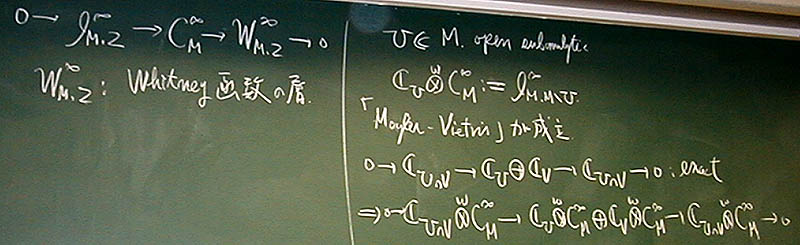 0 → 𝓘^∞_{M,Z} → C^∞_M → W^∞_{M,Z} → 0
W^∞_{M,Z} : Whitney 函数の層.
U ⊂ M. open subanalytic
ℂ_U ⊗^w C^∞_M := 𝓘^∞_{M,M\U}.
「Mayer-Vietris」が成立
0 → ℂ_{U∩V} → ℂ_U ⊕ ℂ_V → ℂ_{U∩V} → 0 : exact
⇒ 0 → ℂ_{U∩V} ⊗^w C^∞_M → ℂ_U ⊗^w C^∞_M ⊕ ℂ_V ⊗^w C^∞_M → ℂ_{U∩V} ⊗^w C^∞_M → 0